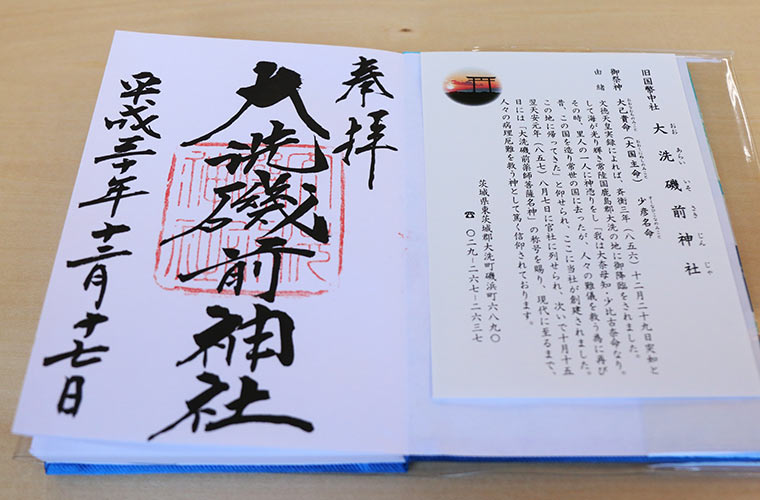 奉拝
大洗磯前神社
平成三十年十二月十七日
旧国幣中社
大洗磯前神社
おお あらい いそ さき じん じゃ
御祭神
大己貴命(大国主命) 少彦名命
由緒
文徳天皇実録によれば、斉衡三年(八五六)十二月二十九日突如と
して海が光り輝き常陸国鹿島郡大洗の地に御降臨をされました。
その時、里人の一人に神憑りをし、「我は大奈母知・少比古奈命なり。
昔、この国を造り常世の国に去ったが、人々の難儀を救う為に再び
この地に帰ってきた」と仰せられ、ここに当社が創建されました。
翌天安元年(八五七)八月七日に官社に列せられ、次いで十月十五
日には「大洗磯前薬師菩薩名神」の称号を賜り、現代に至るまで、
人々の病理厄難を救う神として篤く信仰されております。
茨城県東茨城郡大洗町磯浜町六八九〇
☎ 〇二九-二六七-二六三七